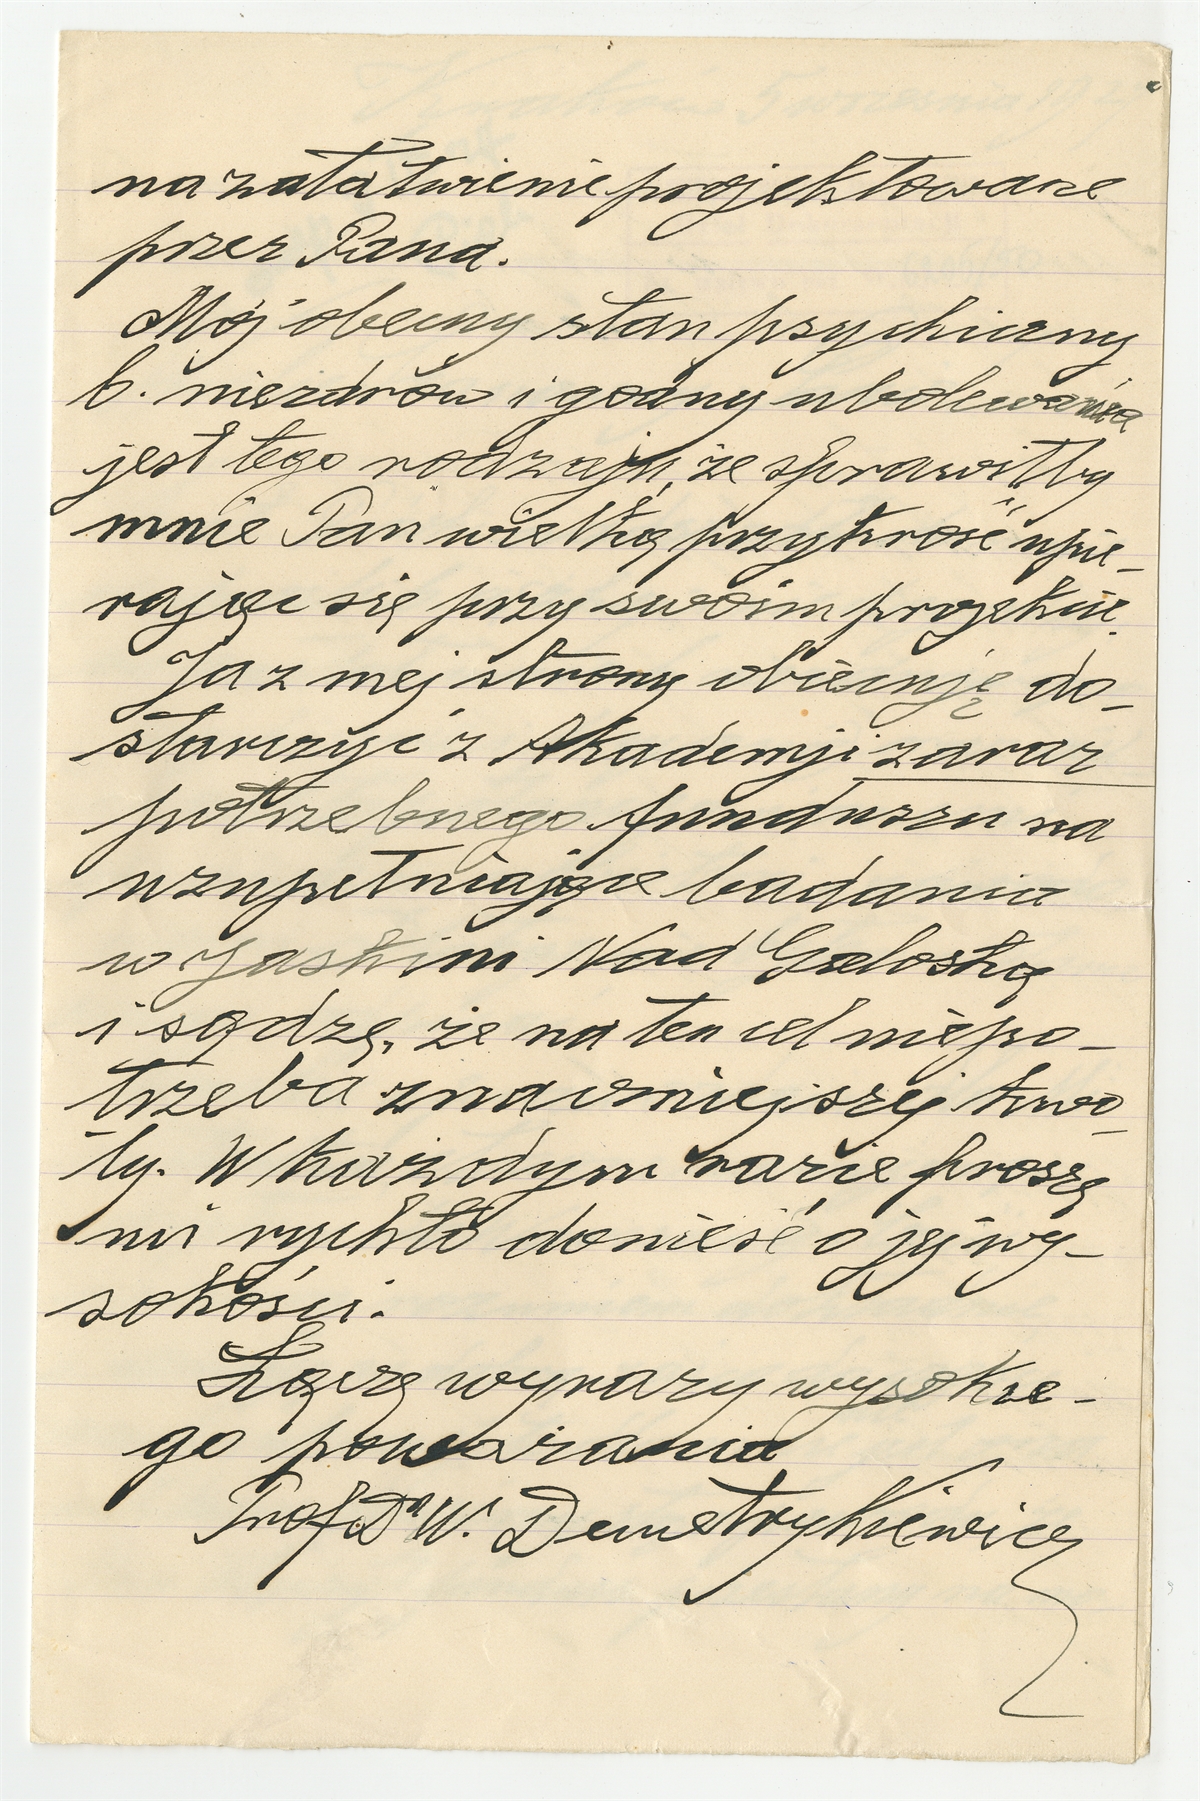 na załatwienie projektowane
przez Pana.
Mój obecny stan psychiczny
b. niezdrów i godny ubolewania
jest tego rodzaju, że sprawiłby
mnie Pan wielką przykrość upie-
rając się przy swoim projekcie.
Ja z mej strony obiecuję do-
starczyć z Akademji zaraz
potrzebnego funduszu na
uzupełniające badania
w jaskini Nad Galoską
i sądzę, że na ten cel niepo-
trzeba znaczniejszej kwo-
ty. W każdym razie proszę
mi rychło donieść o jej wy-
sokości.
Łączę wyrazy wysokie-
go poważania
Prof. Dr W. Demetrykiewicz